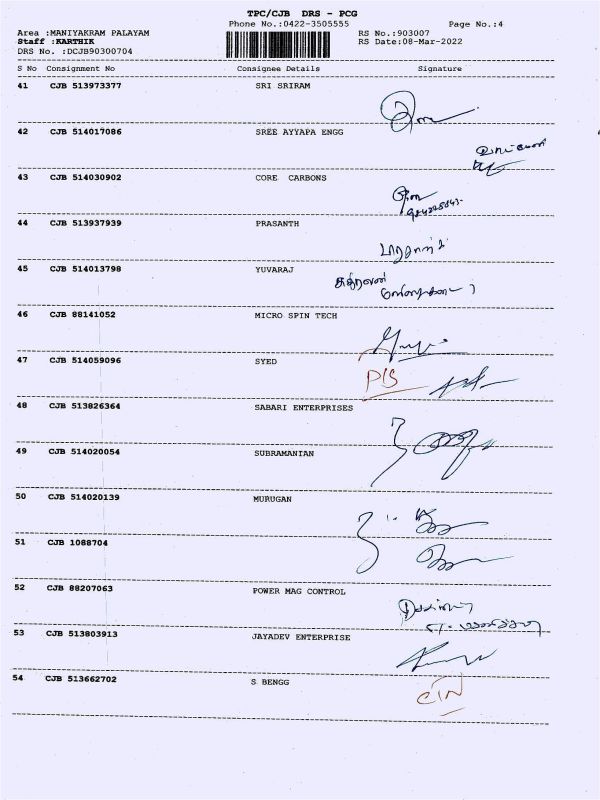 TPC/CJB DRS - PCG
Phone No.:0422-3505555 Page No.:4
Area :MANIYAKRAM PALAYAM RS No.:903007
Staff :KARTHIK RS Date:08-Mar-2022
DRS No. :DCJB90300704
S No Consignment No Consignee Details Signature
41 CJB 513973377 SRI SRIRAM
42 CJB 514017086 SREE AYYAPA ENGG
43 CJB 514030902 CORE CARBONS
44 CJB 513937939 PRASANTH
45 CJB 514013798 YUVARAJ
46 CJB 88141052 MICRO SPIN TECH
47 CJB 514059096 SYED
48 CJB 513826364 SABARI ENTERPRISES
49 CJB 514020054 SUBRAMANIAN
50 CJB 514020139 MURUGAN
51 CJB 1088704
52 CJB 88207063 POWER MAG CONTROL
53 CJB 513803913 JAYADEV ENTERPRISE
54 CJB 513662702 S BENGG